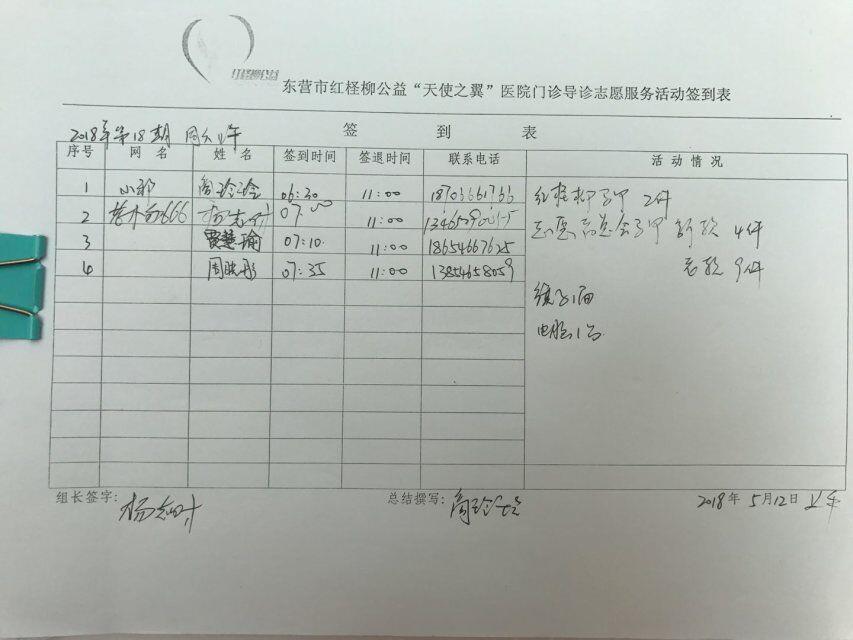 红柽柳公益
东营市红柽柳公益“天使之翼”医院门诊导诊志愿服务活动签到表
签 到 表
2018年第18期 周六上午
序号 网名 姓名 签到时间 签退时间 联系电话 活动情况
1 小郭 周玲玲 06:30 11:00 18703661766 红柽柳马甲 2件
2 07:00 11:00 马甲 新款 4件
3 贾慧瑜 07:10 11:00 18654667625 老款 9件
4 周映彤 07:35 11:00 13854658059
1面
电脑1台
组长签字: 总结撰写: 周玲玲 2018年5月12日上午